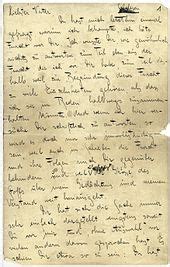 1
Liebster Vater
Du hast mich letzthin einmal
gefragt, warum ich behaupte, ich hätte
Furcht vor Dir. Ich wusste Dir, wie gewöhnlich,
nichts zu antworten, zum Teil eben aus der
Furcht, die ich vor Dir habe, zum Teil des-
halb, weil zur Begründung dieser Furcht
zu viele Einzelheiten gehören, als dass
ich sie im Reden halbwegs zusammen-
halten könnte. Und wenn ich hier ver-
suche Dir schriftlich zu antworten, so
wird es doch nur sehr unvollständig
sein, weil auch im Schreiben die Furcht
und ihre Folgen mich Dir gegenüber
behindern und weil die Grösse des
Stoffs über mein Gedächtnis und meinen
Verstand weit hinausgeht.
Dir hat sich die Sache immer
sehr einfach dargestellt, wenigstens soweit
Du vor mir und, ohne Auswahl, vor
vielen andern davon gesprochen hast. Es
schien Dir etwa so zu sein: